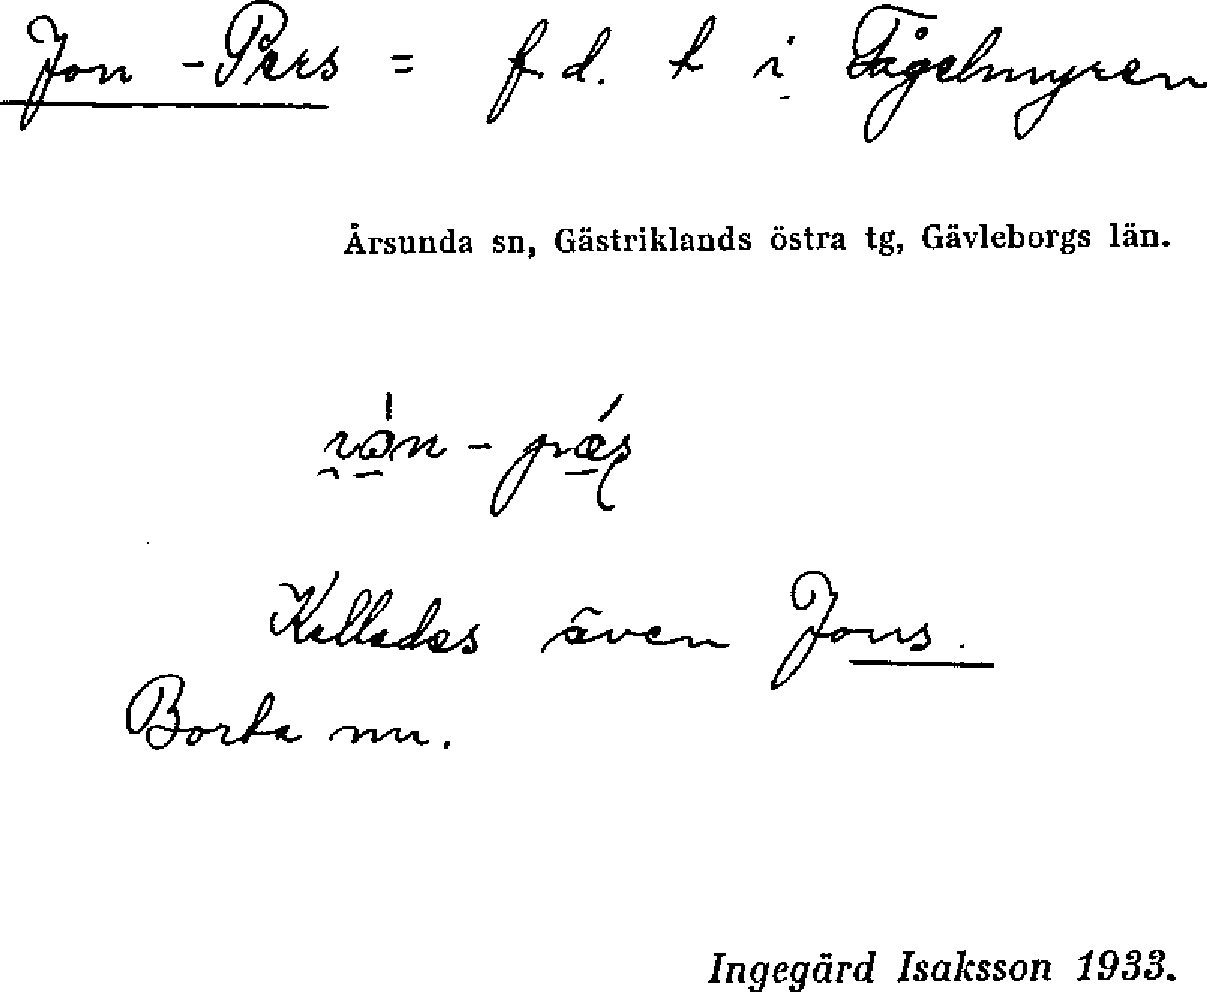 Jon-Pers = f.d. t i Fågelmyren
Årsunda sn, Gästriklands östra tg, Gävleborgs län.
Kallades även Jons.
Borta nu.
Ingegärd Isaksson 1933.